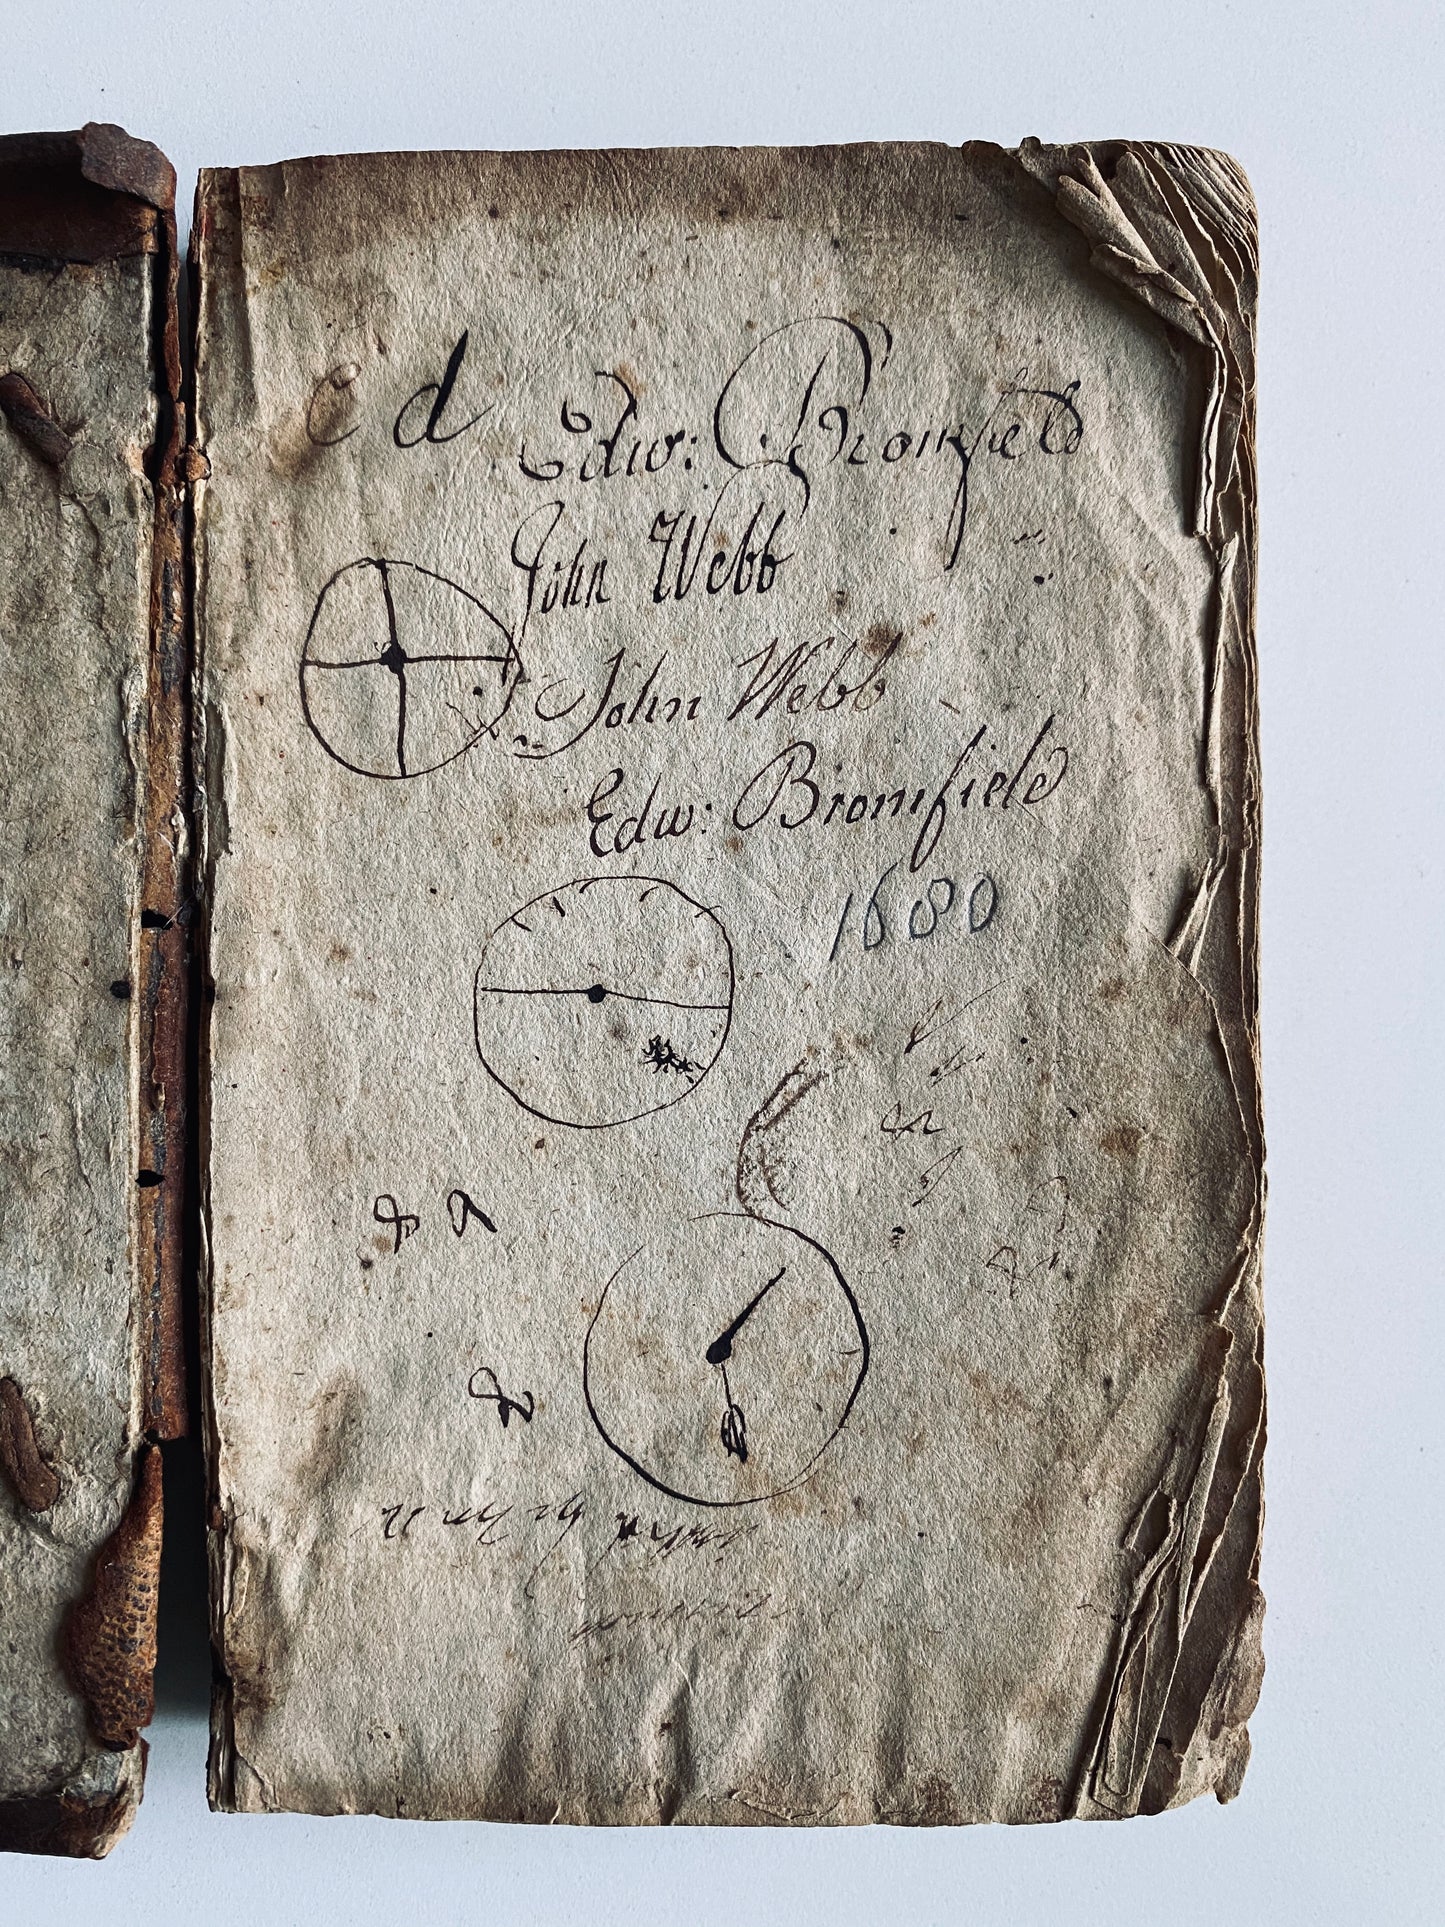 e d Edw: Bromfield
John Webb
John Webb
Edw: Bromfield
1680